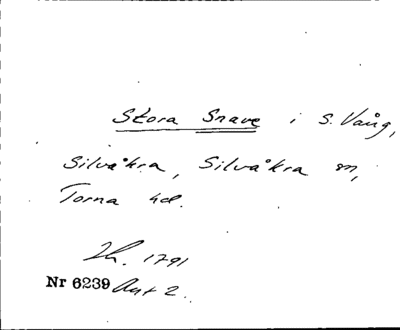 Stora Snave i S. Vång,
Silvåkra, Silvåkra sn,
Torna hd.
Lh. 1791
Nr 6239 Akt 2.